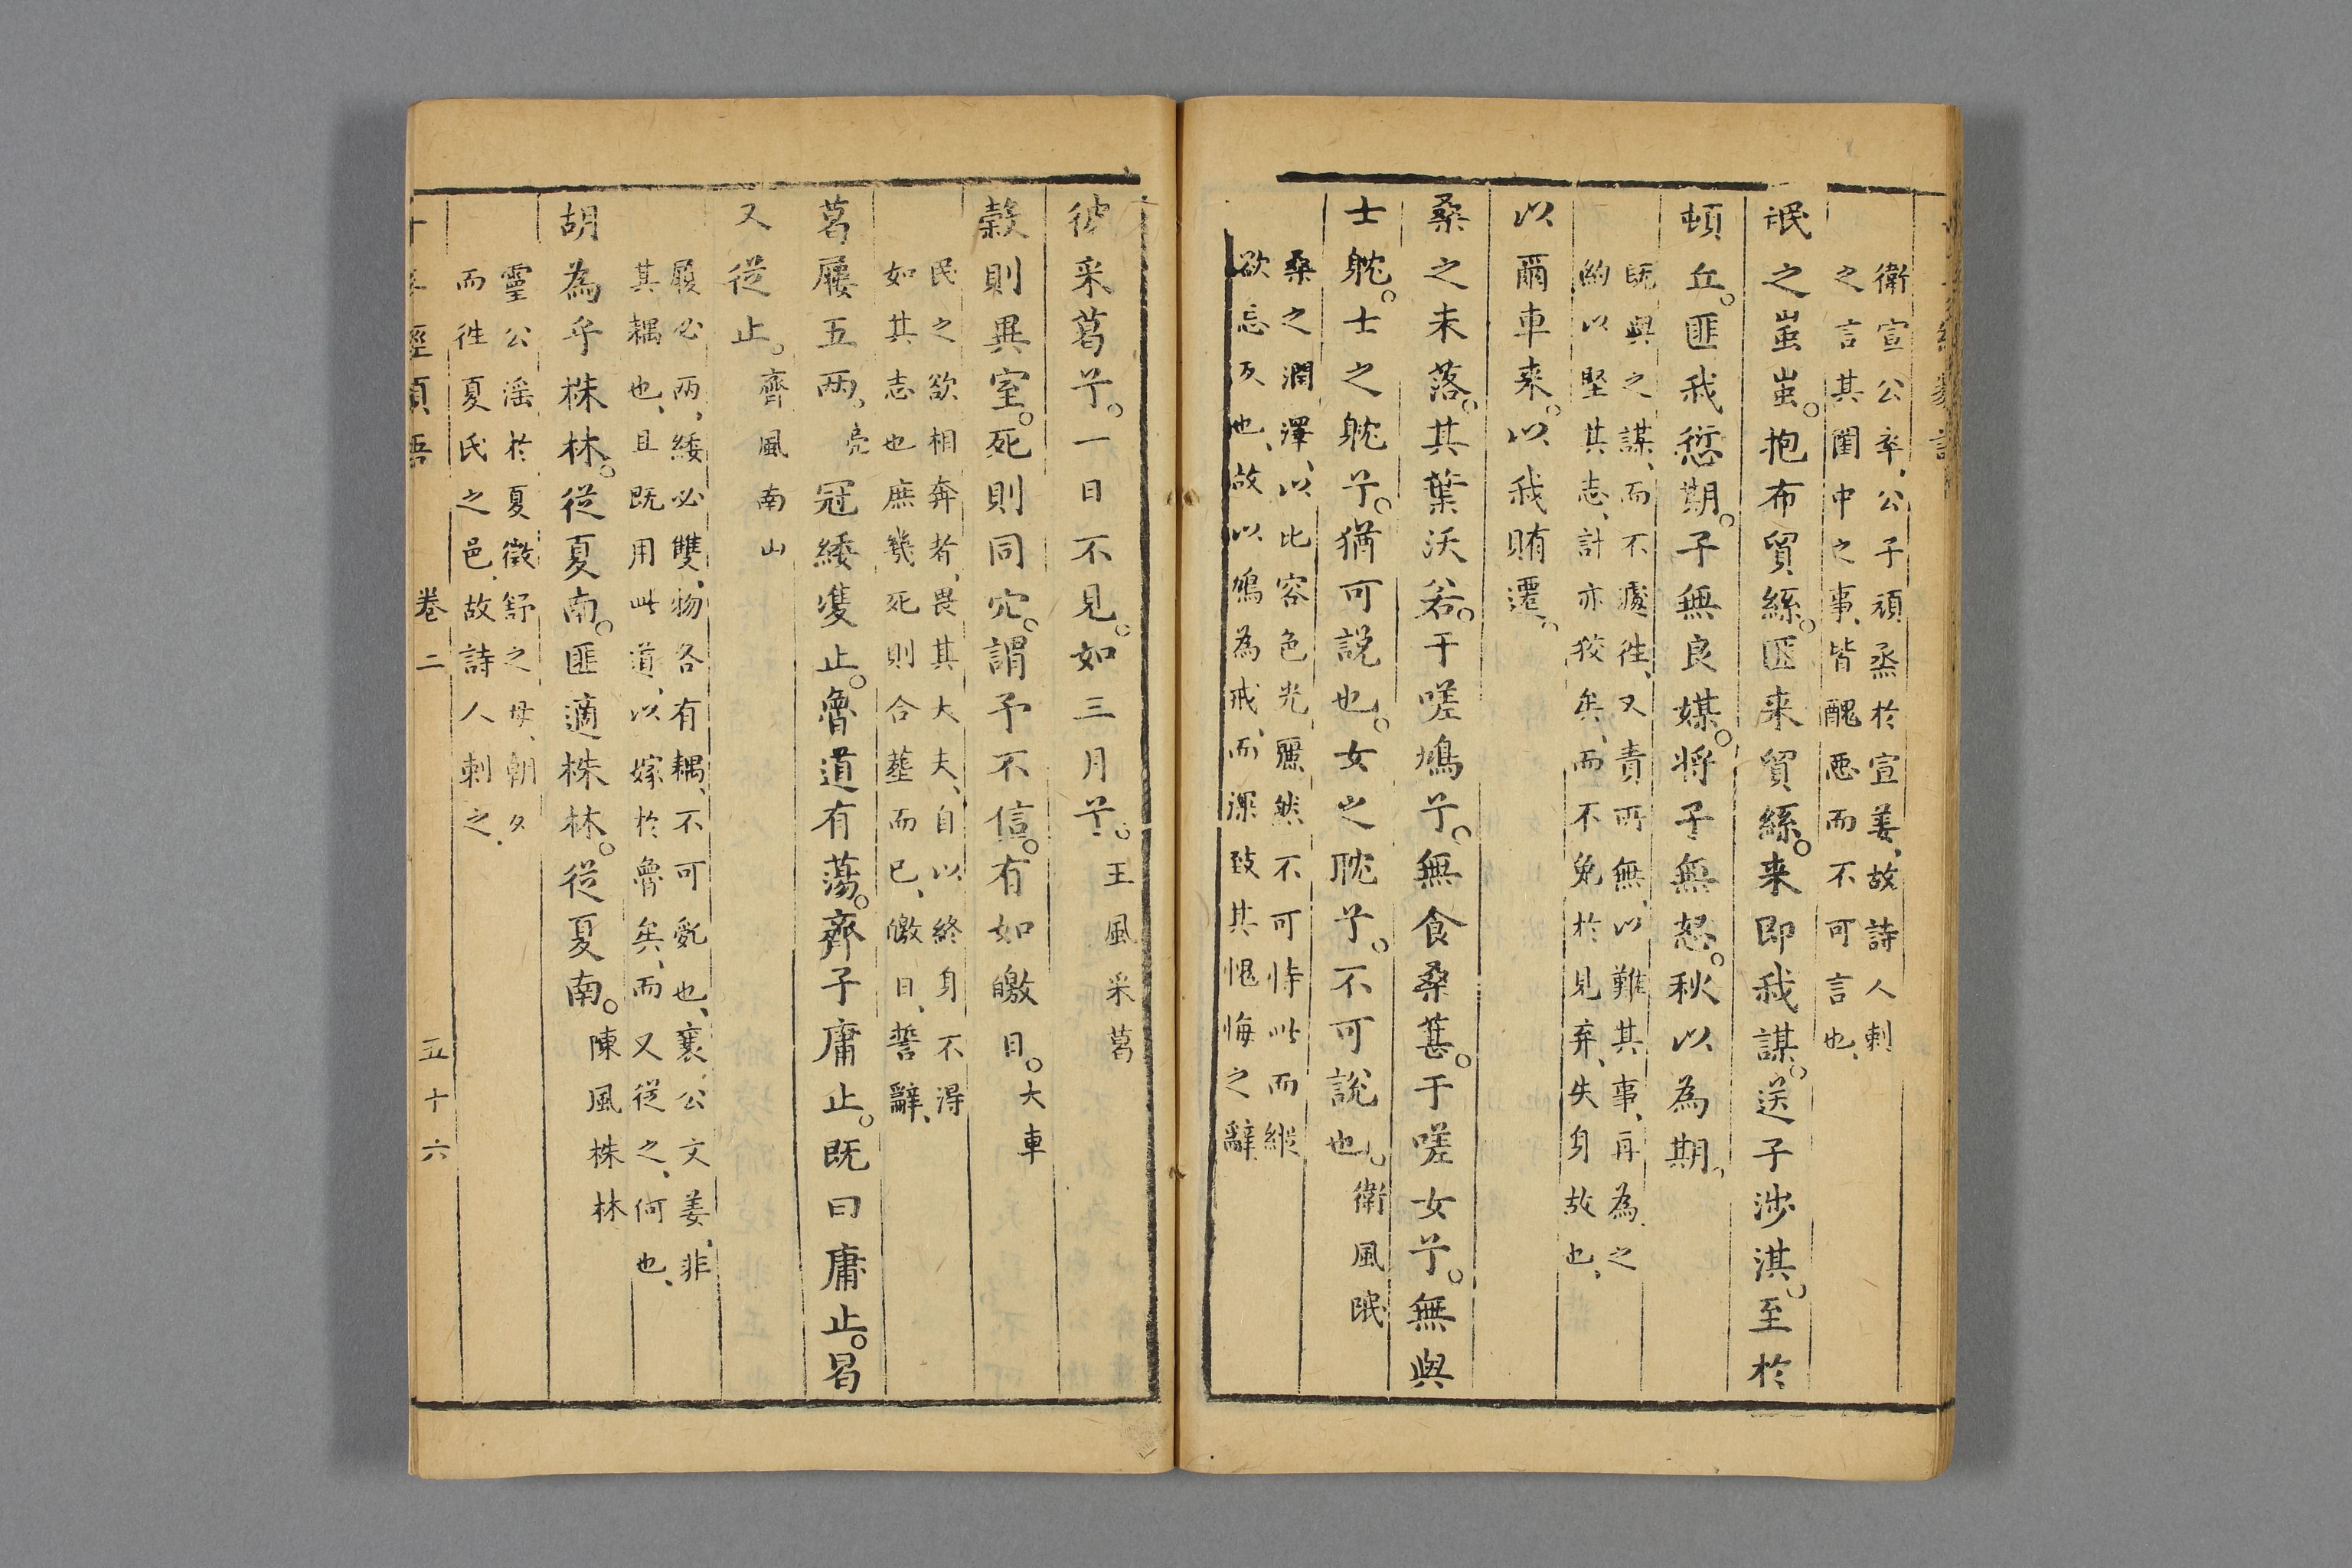 衛宣公卒、公子頑烝於宣姜、故詩人刺
之言其閨中之事、皆醜惡而不可言也、
氓之蚩蚩。抱布貿絲。匪来貿絲。来即我謀。送子涉淇。至於
頓丘。匪我愆期。子無良媒。将子無怒。秋以為期。
既與之謀、而不遽徃、又責所無、以難其事、再為之
約以堅其志、計亦狡矣、而不免於見弃、失身故也、
以爾車来。以我賄遷。
桑之未落。其葉沃若。于嗟鳩兮。無食桑葚。于嗟女兮。無與
士躭。士之躭兮。猶可説也。女之耽兮。不可説也。衛風氓
桑之潤澤、以比容色光麗然不可恃此而縱
欲忘反也、故以鳩為戒、而深致其愧悔之辭
彼采葛兮。一日不見。如三月兮。王風采葛
榖則異室。死則同穴。謂予不信。有如皦日。大車
民之欲相奔者、畏其大夫、自以終身不得
如其志也庶幾死則合葬而已、皦日、誓辭、
葛屨五两。冠緌雙止。魯道有蕩。齊子庸止。既曰庸止。曷
又從止。齊風南山
屨必两、緌必雙、物各有耦、不可亂也、襄公文姜、非
其耦也、且既用此道、以嫁於魯矣、而又從之、何也、
胡為乎株林。從夏南。匪適株林。從夏南。陳風株林
靈公淫於夏徵舒之母、朝夕
而徃夏氏之邑、故詩人刺之、
卷二 五十六